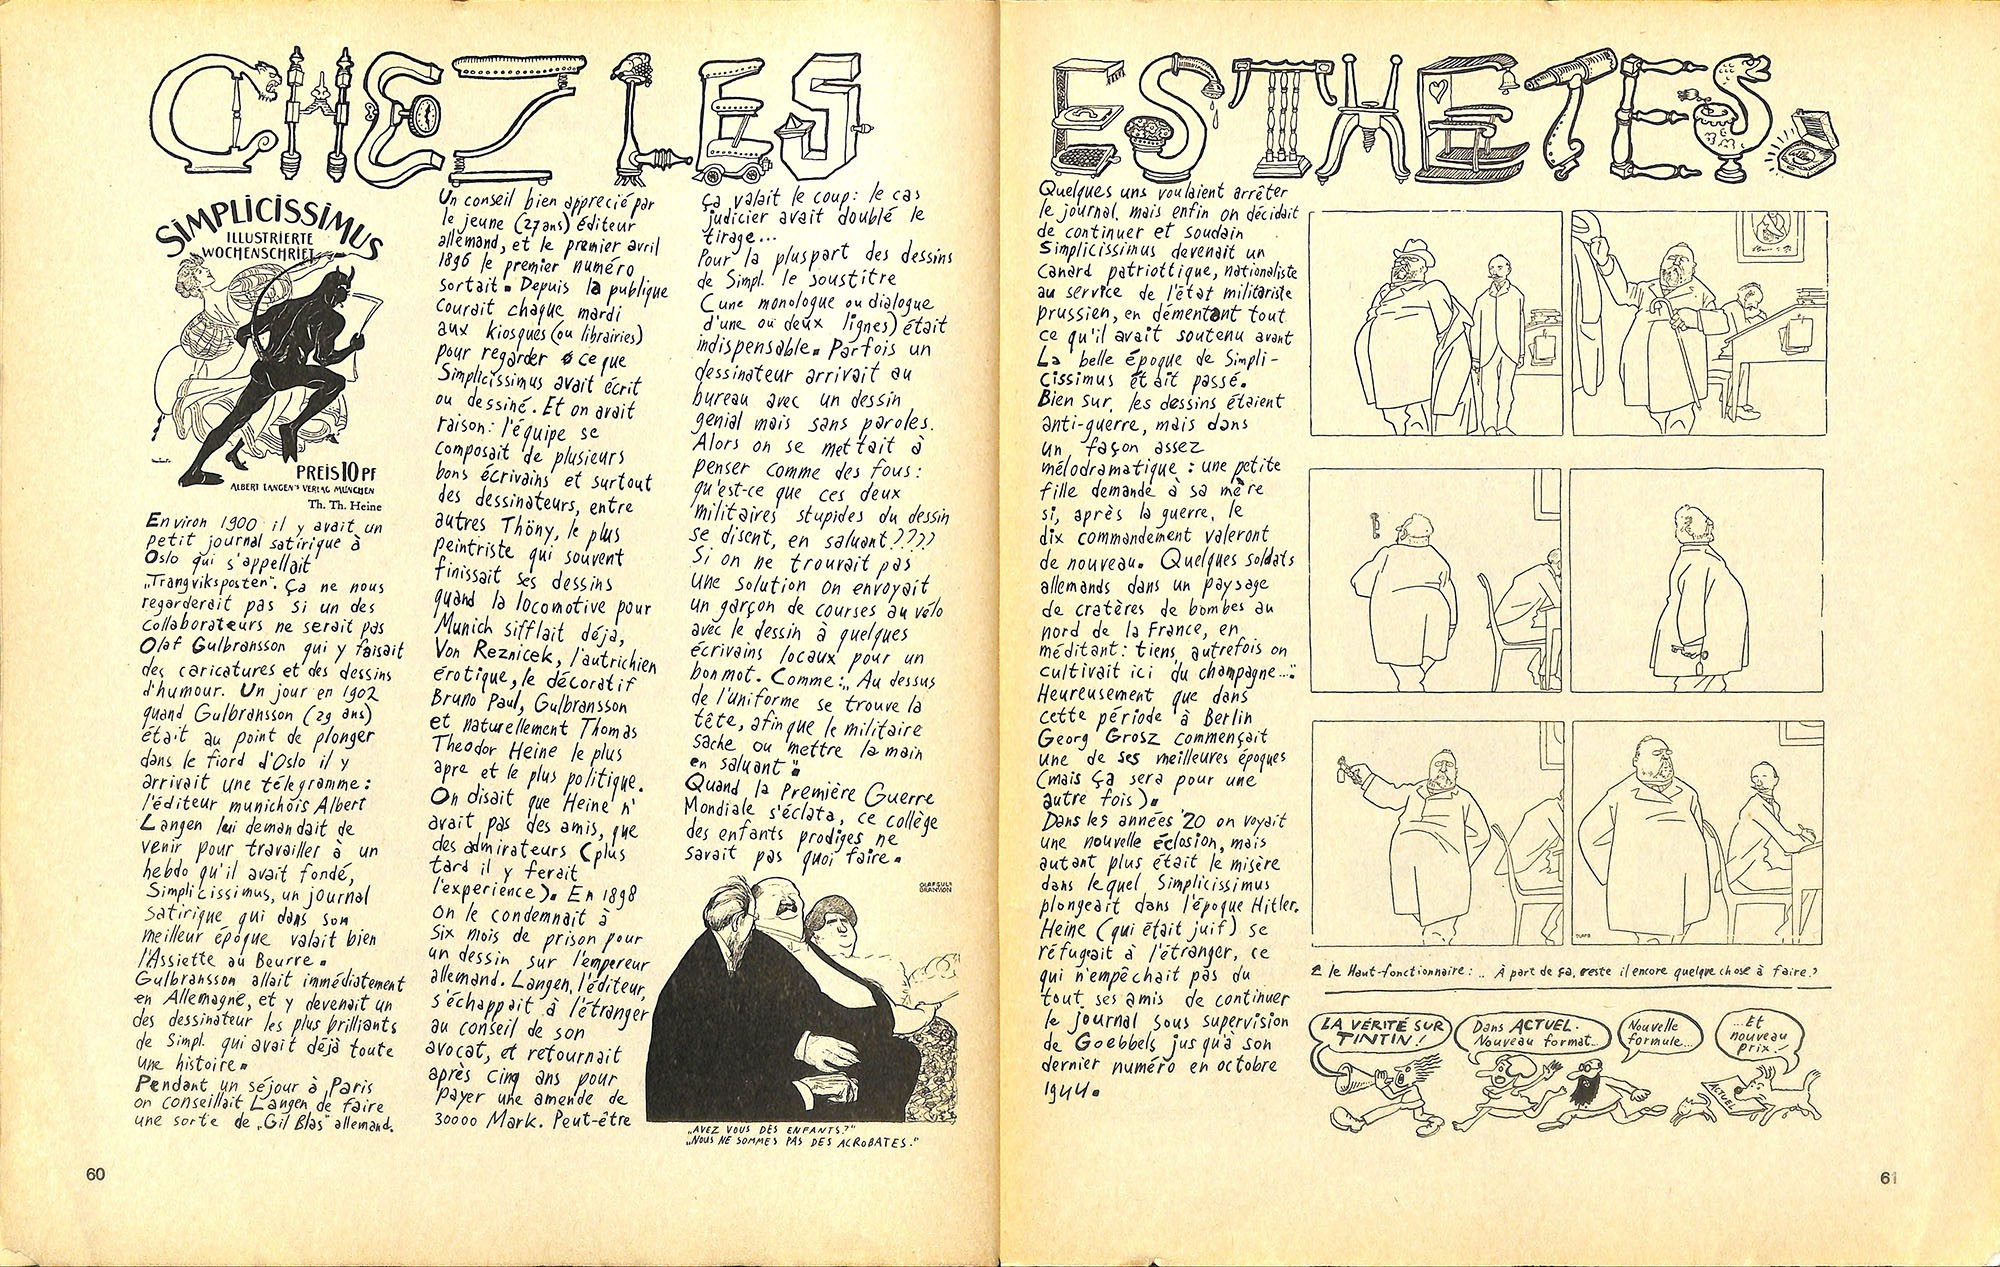 CHEZ LES
ESTHETES
SIMPLICISSIMUS
ILLUSTRIERTE
WOCHENSCHRIFT
PREIS 10 PF
ALBERT LANGEN'S VERLAG MÜNCHEN
Th. Th. Heine
Environ 1900 il y avait un
petit journal satirique à
Oslo qui s'appellait
„Trangviksposten". Ça ne nous
regarderait pas si un des
collaborateurs ne serait pas
Olaf Gulbransson qui y faisait
des caricatures et des dessins
d'humour. Un jour en 1902
quand Gulbransson (29 ans)
était au point de plonger
dans le fiord d'Oslo il y
arrivait une télegramme:
l'éditeur munichois Albert
Langen lui demandait de
venir pour travailler à un
hebdo qu'il avait fondé,
Simplicissimus, un journal
satirique qui dans son
meilleur époque valait bien
l'Assiette au Beurre.
Gulbransson allait immédiatement
en Allemagne, et y devenait un
des dessinateur les plus brilliants
de Simpl. qui avait déjà toute
une histoire.
Pendant un séjour à Paris
on conseillait Langen de faire
une sorte de „Gil Blas" allemand.
Un conseil bien apprecié par
le jeune (27 ans) éditeur
allemand, et le premier avril
1896 le premier numéro
sortait. Depuis la publique
courait chaque mardi
aux kiosques (ou librairies)
pour regarder ce que
Simplicissimus avait écrit
ou dessiné. Et on avait
raison: l'équipe se
composait de plusieurs
bons écrivains et surtout
des dessinateurs, entre
autres Thöny, le plus
peintriste qui souvent
finissait ses dessins
quand la locomotive pour
Munich sifflait déja,
Von Reznicek, l'autrichien
érotique, le décoratif
Bruno Paul, Gulbransson
et naturellement Thomas
Theodor Heine le plus
apre et le plus politique.
On disait que Heine n'
avait pas des amis, que
des admirateurs (plus
tard il y ferait
l'experience). En 1898
on le condemnait à
six mois de prison pour
un dessin sur l'empereur
allemand. Langen, l'éditeur,
s'échappait à l'étranger
au conseil de son
avocat, et retournait
après cinq ans pour
payer une amende de
30000 Mark. Peut-être
ça valait le coup: le cas
judicier avait doublé le
tirage...
Pour la pluspart des dessins
de Simpl. le soustitre
(une monologue ou dialogue
d'une ou deux lignes) était
indispensable. Parfois un
dessinateur arrivait au
bureau avec un dessin
genial mais sans paroles.
Alors on se mettait à
penser comme des fous:
qu'est-ce que ces deux
militaires stupides du dessin
se disent, en saluant????
Si on ne trouvait pas
une solution on envoyait
un garçon de courses au vélo
avec le dessin à quelques
écrivains locaux pour un
bon mot. Comme: „Au dessus
de l'uniforme se trouve la
tête, afin que le militaire
sache ou mettre la main
en saluant".
Quand la Première Guerre
Mondiale s'éclata, ce collège
des enfants prodiges ne
savait pas quoi faire.
OLAF GUL
BRANSSON
„AVEZ VOUS DES ENFANTS?"
„NOUS NE SOMMES PAS DES ACROBATES."
60
Quelques uns voulaient arrêter
le journal, mais enfin on décidait
de continuer et soudain
Simplicissimus devenait un
canard patriottique, nationaliste
au service de l'état militariste
prussien, en démentant tout
ce qu'il avait soutenu avant
La belle époque de Simpli-
cissimus était passé.
Bien sur, les dessins étaient
anti-guerre, mais dans
un façon assez
mélodramatique: une petite
fille demande à sa mère
si, après la guerre, le
dix commandement valeront
de nouveau. Quelques soldats
allemands dans un paysage
de cratères de bombes au
nord de la France, en
méditant: tiens, autrefois on
cultivait ici du champagne...".
Heureusement que dans
cette période à Berlin
Georg Grosz commençait
une de ses meilleures époques
(mais ça sera pour une
autre fois).
Dans les années '20 on voyait
une nouvelle éclosion, mais
autant plus était le misère
dans lequel Simplicissimus
plongeait dans l'époque Hitler.
Heine (qui était juif) se
réfugait à l'étranger, ce
qui n'empêchait pas du
tout ses amis de continuer
le journal sous supervision
de Goebbels jusqu'à son
dernier numéro en octobre
1944.
le Haut-fonctionnaire: „À part de ça, reste il encore quelque chose à faire?
LA VÉRITÉ SUR
TINTIN!
Dans ACTUEL.
Nouveau format...
Nouvelle
formule...
...Et
nouveau
prix!
ACTUEL
61